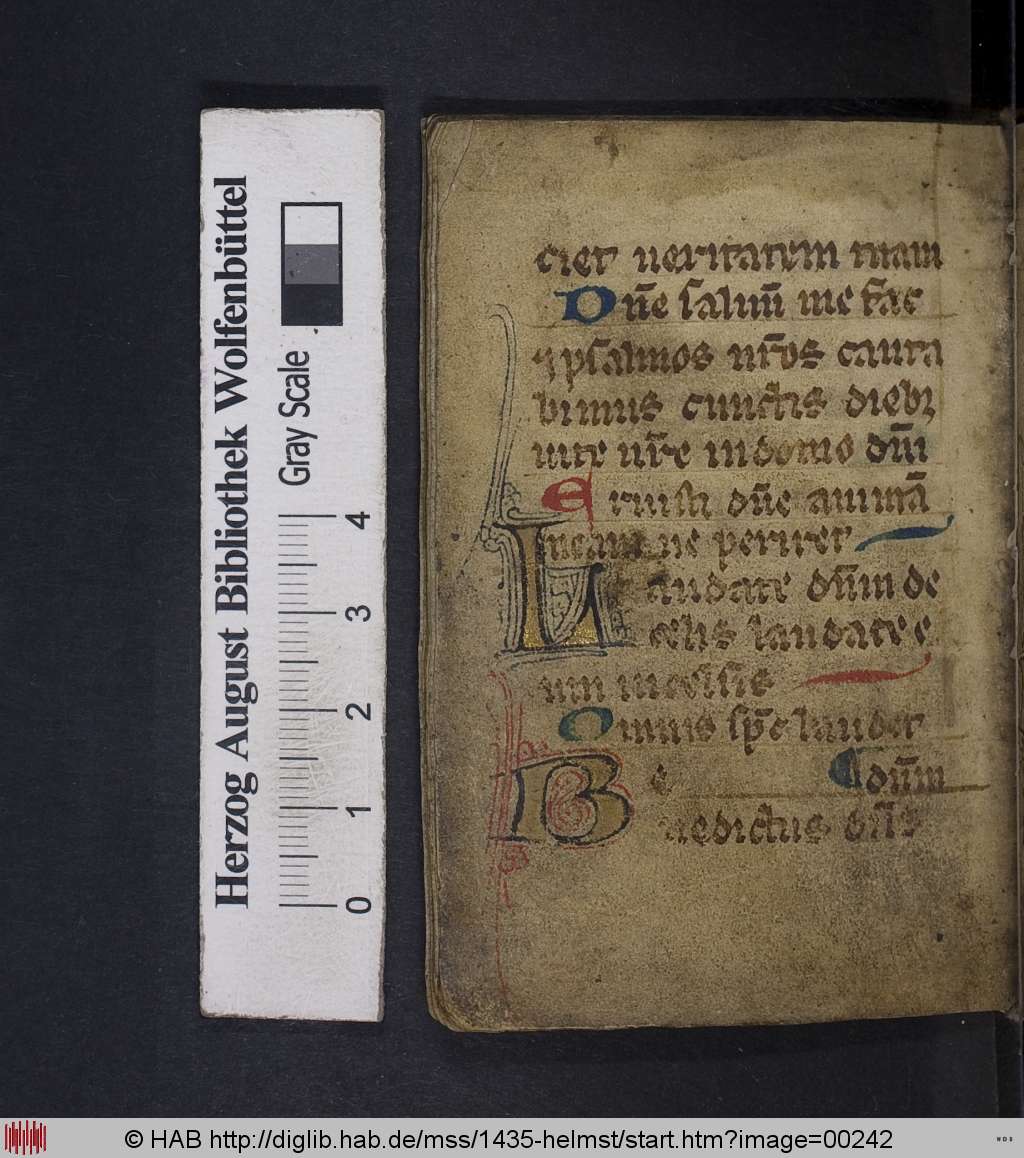 Herzog August Bibliothek Wolfenbüttel
Gray Scale
0 1 2 3 4
ciet ueritatem tuam
Dn̄e saluū me fac
⁊ psalmos nr̄os canta
bimus cunctis diebꝫ
uite nr̄e in domo dn̄i
Eruisti dn̄e animā
meam ne periret
Laudate dn̄m de
celis laudate e
um in celsis
Omnis sp̄c laudet
Be dn̄m
nedictus dn̄s
© HAB http://diglib.hab.de/mss/1435-helmst/start.htm?image=00242